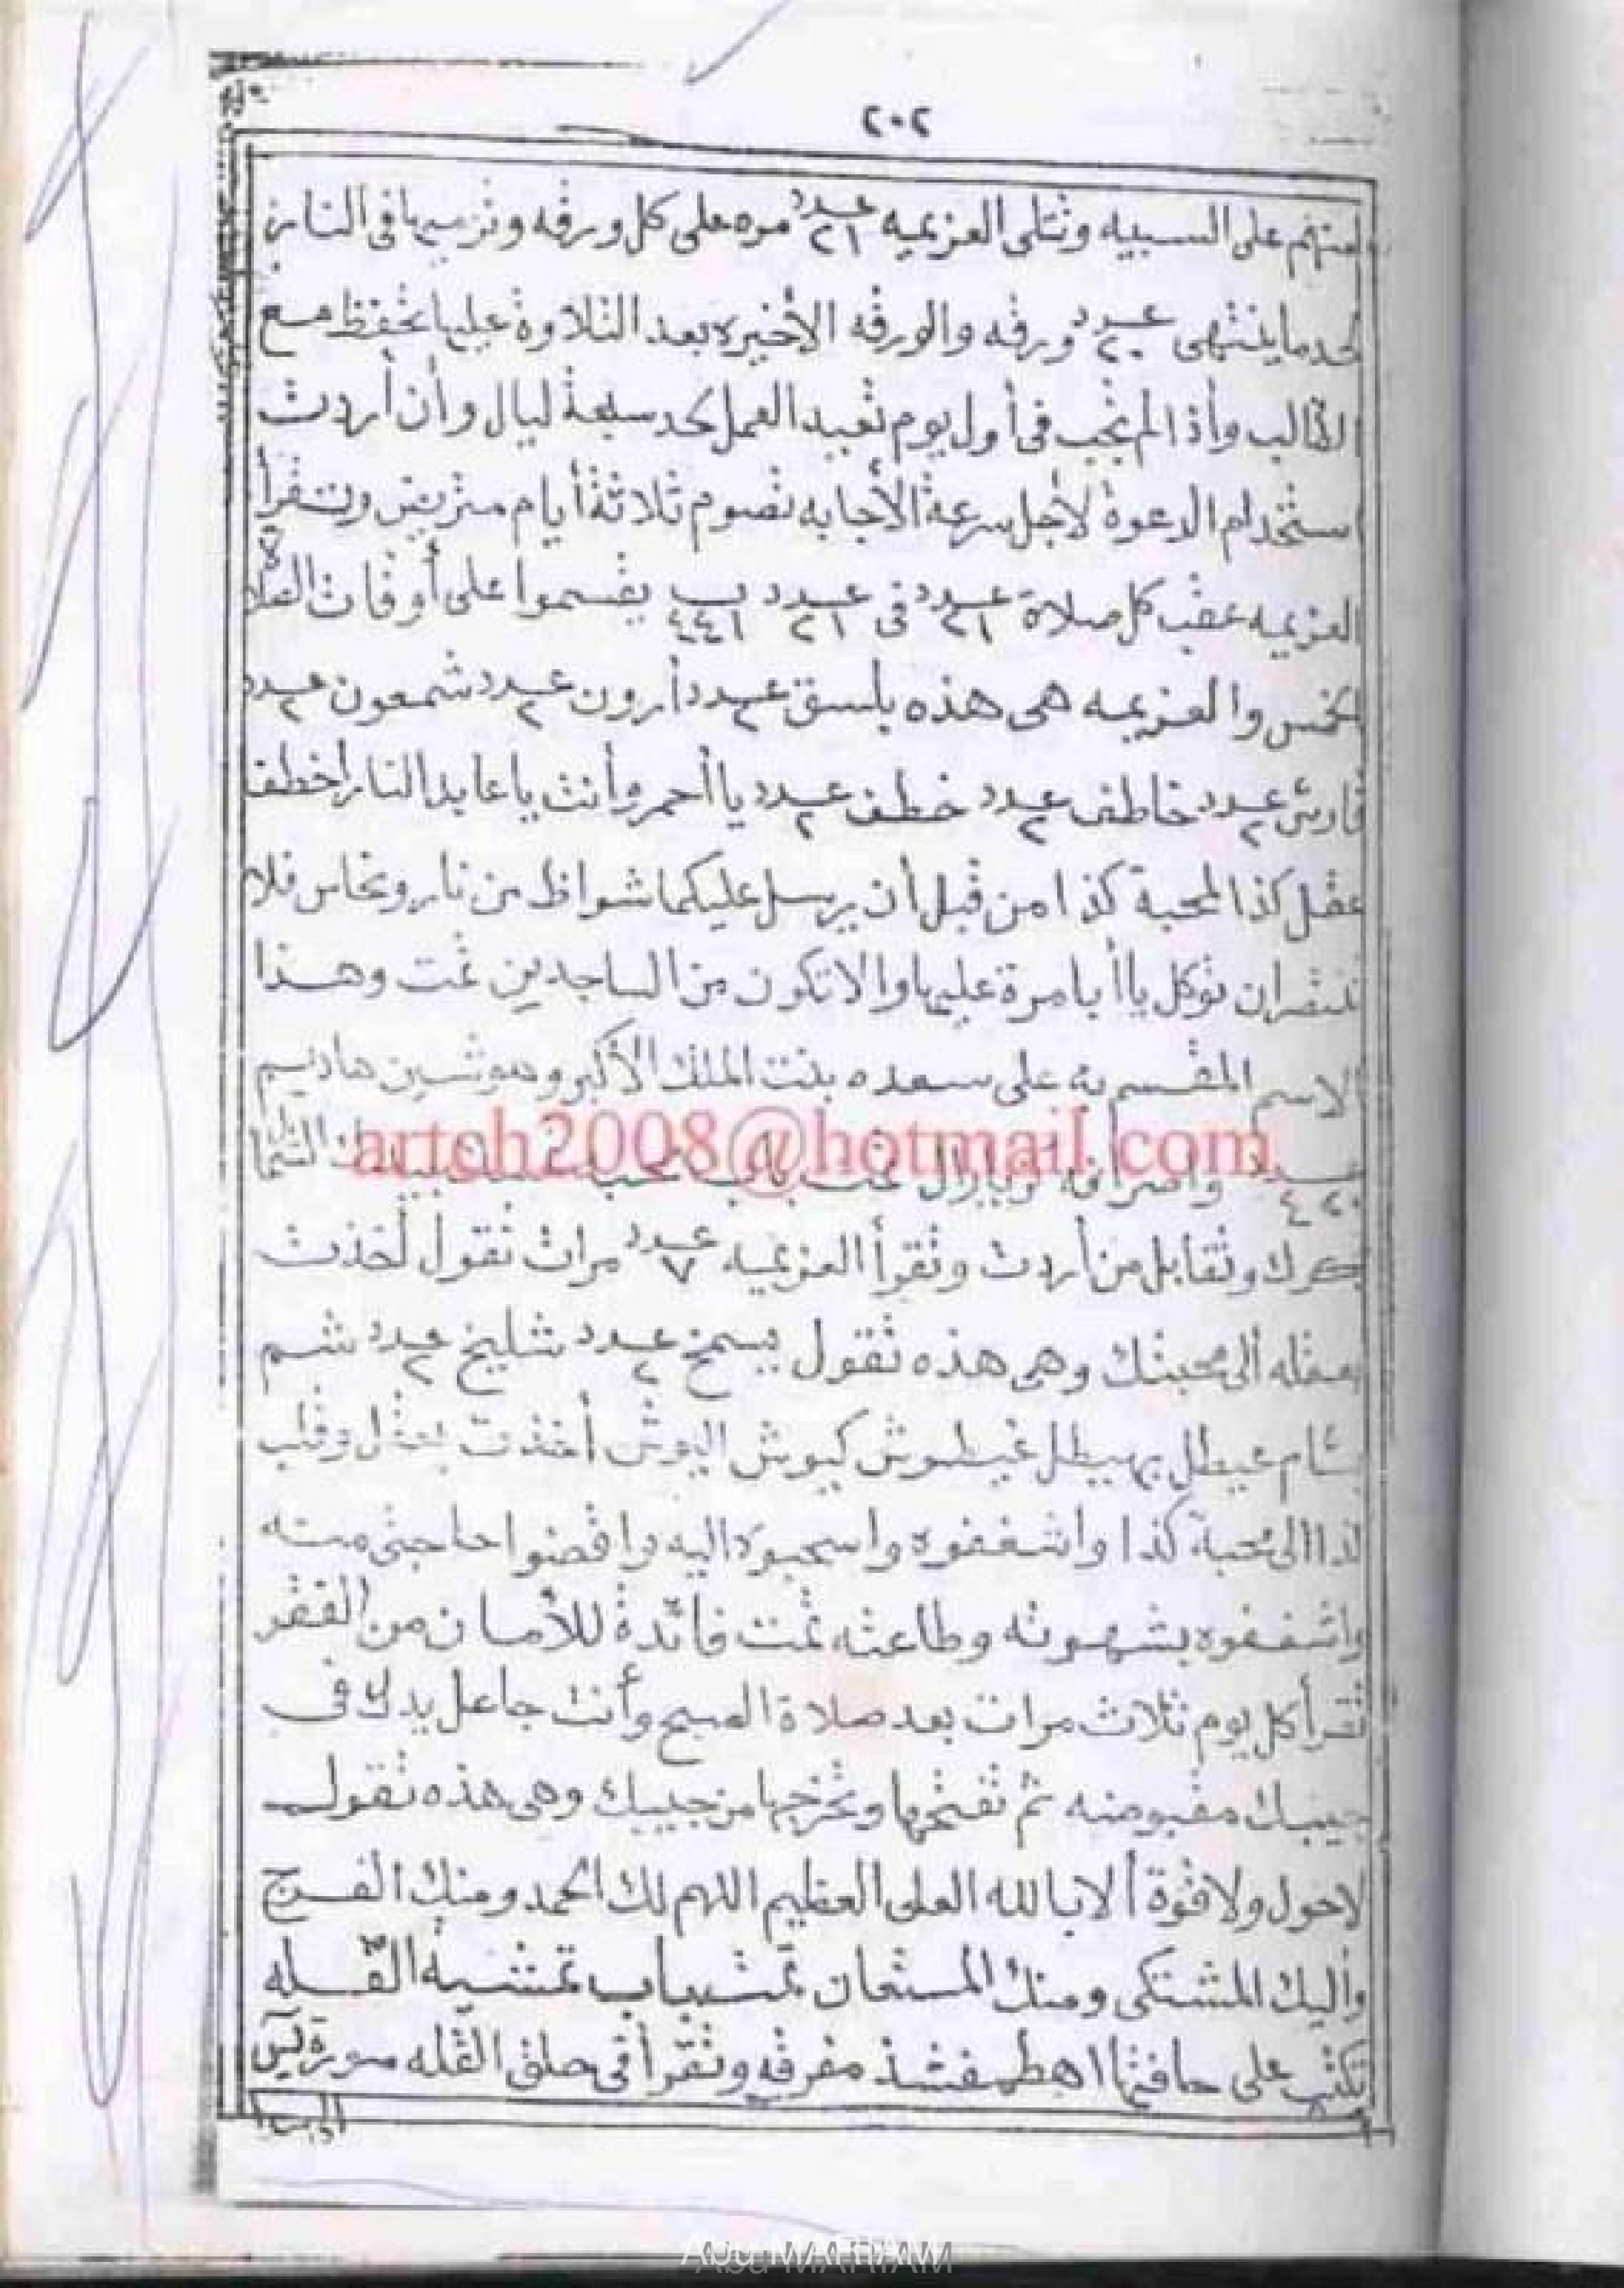 ٢٠٢
منهم على السبيه وتتلى العزيمه عدد ٢١ مره على كل ورقه وترميها فى النار
لحد ما ينتهى عدد ٢٠ ورقه والورقه الأخيره بعد التلاوة عليها تحفظ مع
الطالب وأذا لم يجب فى أول يوم تعيد العمل لحد سبعة ليال وأن أردت
استخدام الدعوة لأجل سرعة الأجابه تصوم ثلاثة أيام وتقرأ
العزيمه عقب كل صلاة عدد ٢١ فى عدد ٢١ ب ٤٤١ يقسموا على أوقات الصلاة
الخمس والعزيمه هى هذه بلسق عدد ٢ أرون عدد ٢ شمعون عدد ٢
عدد ٢ خاطف عدد ٢ خطف عدد ٢ يا أحمر وأنت يا عابد النار أخطف
عقل كذا لمحبة كذا من قبل أن يرسل عليكما شواظ من نار ونحاس فلا
تنتصران توكل يا أبا مرة عليها والا تكون من الساجدين تمت وهذا
الاسم المقسم به على سعده بنت الملك الأكبر وهوشين هاديم
artch2008@hotmail.com
عدد ٤٢٠
وتقابل من أردت وتقرأ العزيمه عدد ٧ مرات تقول أخذت
بعقله ألى محبتك وهى هذه تقول بيسمخ عدد ٢ شليخ عدد ٢ شم
شام عيطل بهيطل غيطوش كيوش اليوش أخذت بعقل وقلب
كذا الى محبة كذا واشغفوه واسحبوه اليه واقضوا حاجتى منه
واشغفوه بشهوته وطاعته تمت فائدة للأمان من الفقر
تقرأ كل يوم ثلاث مرات بعد صلاة الصبح وأنت جاعل يدك فى
جيبك مقبوضه ثم تفتحها وتخرجها من جيبك وهى هذه تقول
لاحول ولا قوة ألا بالله العلى العظيم اللهم لك الحمد ومنك الفرج
وأليك المشتكى ومنك المستعان تمت باب تمشية القله
تكتب على حافتها اهطمفشذ مفرقه وتقرأ فى حلق القله سورة يس
Abu MARIAM